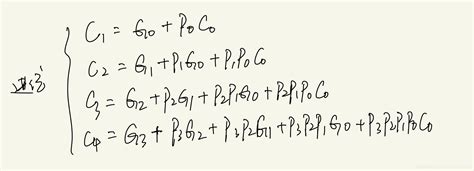 C1 = G0 + P0C0
C2 = G1 + P1G0 + P1P0C0
C3 = G2 + P2G1 + P2P1G0 + P2P1P0C0
C4 = G3 + P3G2 + P3P2G1 + P3P2P1G0 + P3P2P1P0C0